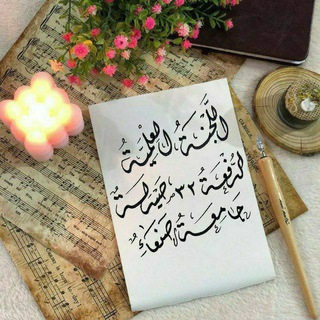 اللَّجْنَةُ العِلْمِيَّةُ
الدُفعَة ٣٢ صَيْدَلَة
جَامِعَةُ صَنْعَاءَ